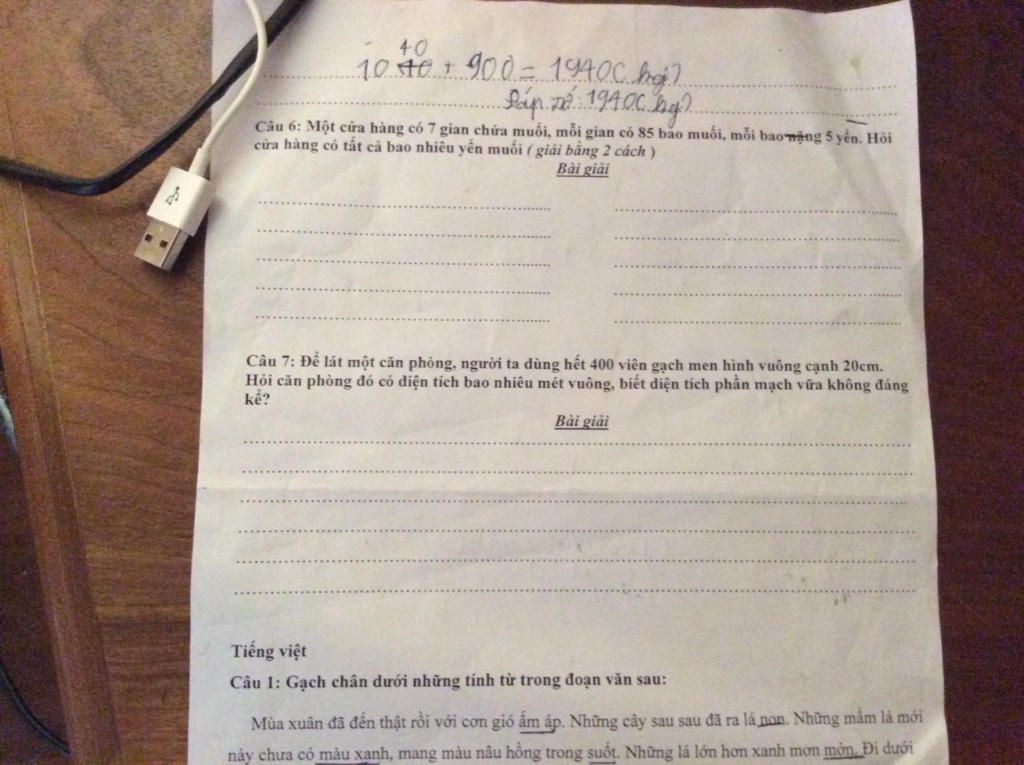 40
10 40 + 900 = 1940 ( kg )
Đáp số: 1940 ( kg )
Câu 6: Một cửa hàng có 7 gian chứa muối, mỗi gian có 85 bao muối, mỗi bao nặng 5 yến. Hỏi
cửa hàng có tất cả bao nhiêu yến muối ( giải bằng 2 cách )
Bài giải
Câu 7: Để lát một căn phòng, người ta dùng hết 400 viên gạch men hình vuông cạnh 20cm.
Hỏi căn phòng đó có diện tích bao nhiêu mét vuông, biết diện tích phần mạch vữa không đáng
kể?
Bài giải
Tiếng việt
Câu 1: Gạch chân dưới những tính từ trong đoạn văn sau:
Mùa xuân đã đến thật rồi với cơn gió ấm áp. Những cây sau sau đã ra lá non. Những mầm lá mới
nảy chưa có màu xanh, mang màu nâu hồng trong suốt. Những lá lớn hơn xanh mơn mởn. Đi dưới